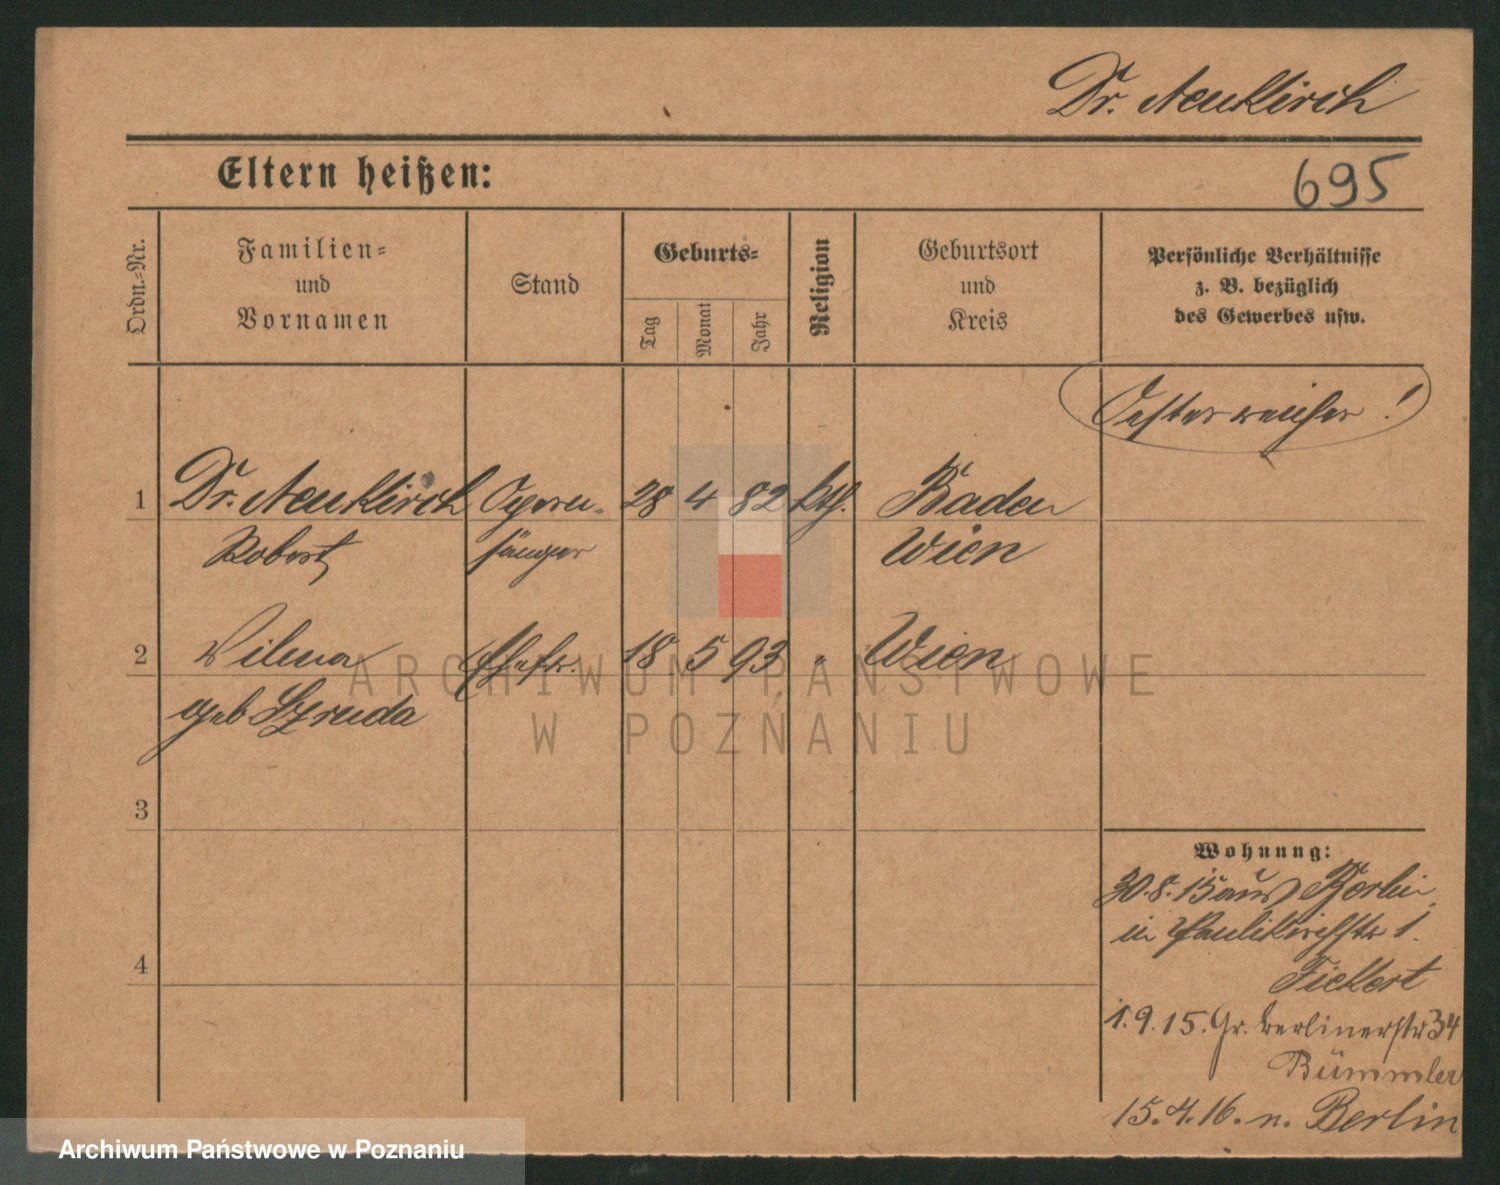 Dr. Neukirch
Eltern heißen:
695
Ordn.-Nr.
Familien-
und
Vornamen
Stand
Geburts-
Tag
Monat
Jahr
Religion
Geburtsort
und
Kreis
Persönliche Verhältnisse
z. B. bezüglich
des Gewerbes usw.
Oesterreicher!
1 Dr. Neukirch Opern- 28 4 82 kth. Baden
Robert sänger Wien
2 Vilma Ehefr. 18 5 93 " Wien
geb Szruda
3
4
Wohnung:
30.8.15 aus Berlin
in Paulikirchstr 1.
Fickert
1.9.15. Gr. Berlinerstr 34
Bümmler
15.4.16. n. Berlin
ARCHIWUM PAŃSTWOWE
W POZNANIU
Archiwum Państwowe w Poznaniu